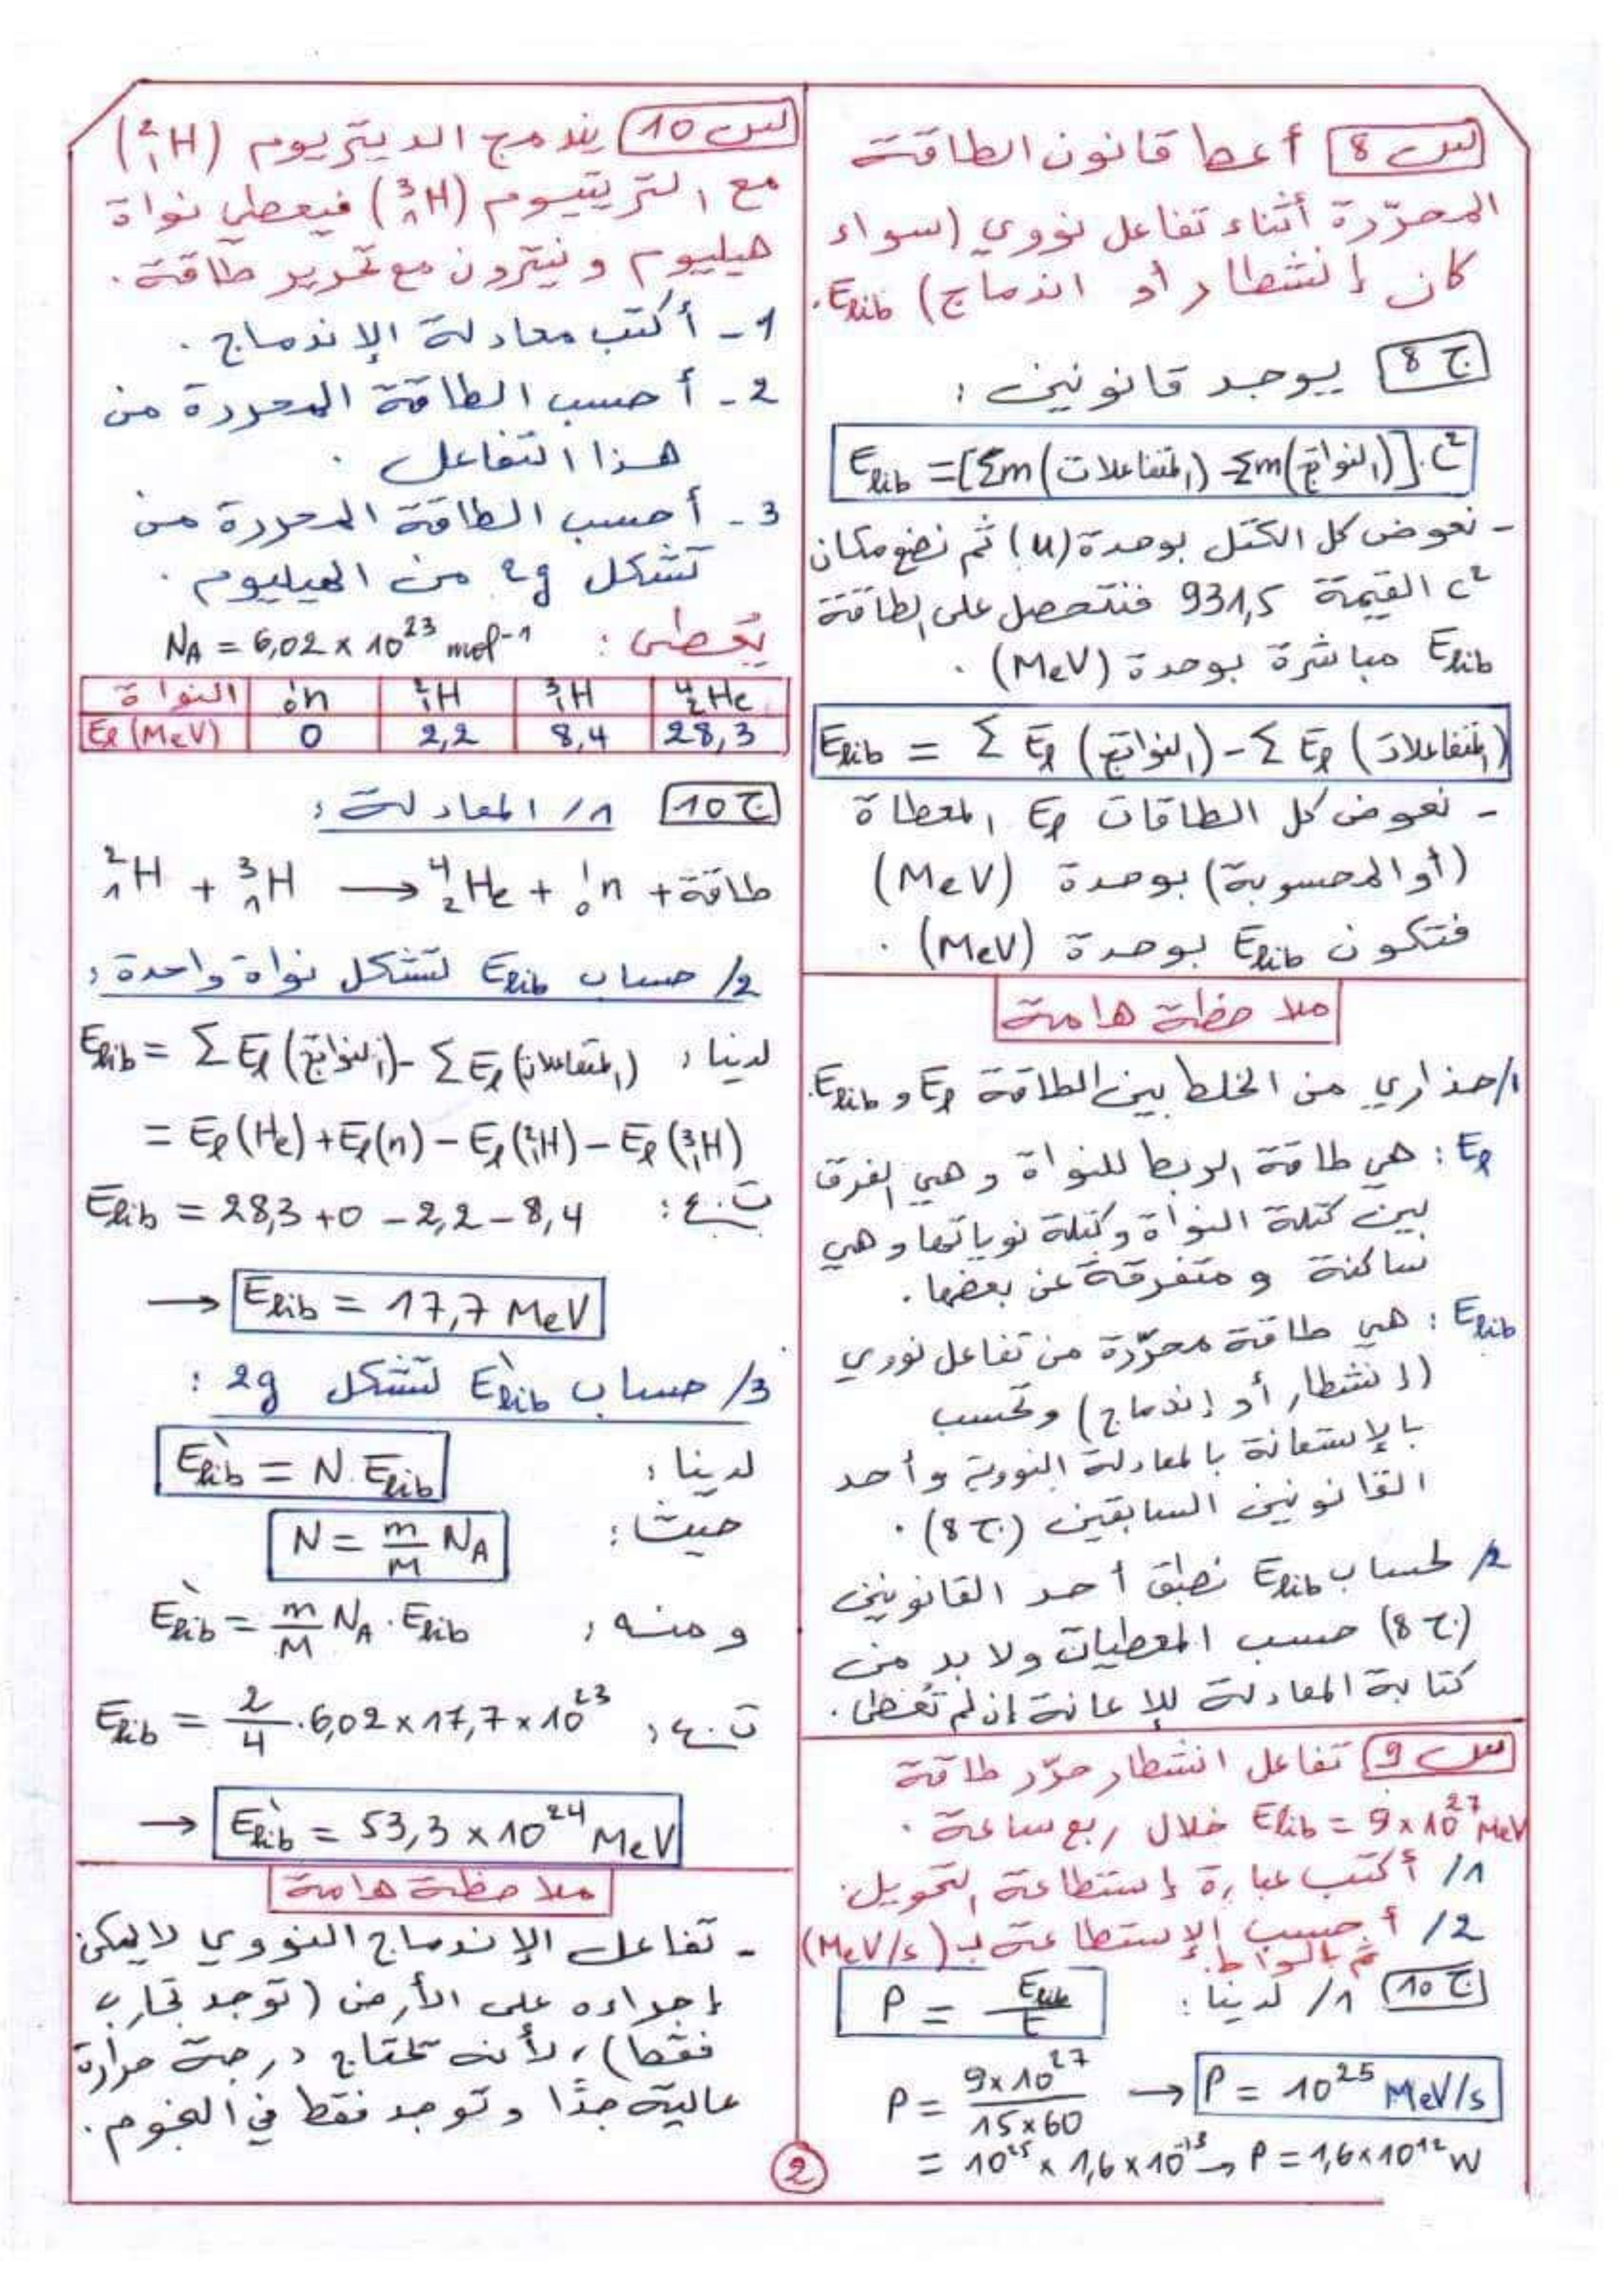 س 8 أعط قانون الطاقة
المحرّرة أثناء تفاعل نووي (سواء
كان إنشطار أو اندماج) Elib.
ج 8 يوجد قانونين :
Elib = [Σm(المتفاعلات) - Σm(النواتج)].C²
- نعوض كل الكتل بوحدة (u) ثم نضع مكان
C² القيمة 931,5 فنتحصل على الطاقة
Elib مباشرة بوحدة (MeV) .
Elib = Σ El (النواتج) - Σ El (المتفاعلات)
- نعوض كل الطاقات El المعطاة
(أو المحسوبة) بوحدة (MeV)
فتكون Elib بوحدة (MeV) .
ملاحظة هامة
1/ حذاري من الخلط بين الطاقة El و Elib.
El : هي طاقة الربط للنواة و هي الفرق
بين كتلة النواة وكتلة نوياتها و هي
ساكنة و متفرقة عن بعضها .
Elib : هي طاقة محرّرة من تفاعل نووي
(إنشطار أو إندماج) وتحسب
بالإستعانة بالمعادلة النووية وأحد
القانونين السابقين (ج 8) .
2/ لحساب Elib نطبق أحد القانونين
(ج 8) حسب المعطيات ولا بد من
كتابة المعادلة للإعانة إن لم تُعطى .
س 9 تفاعل انشطار حرّر طاقة
Elib = 9×10²⁷ MeV خلال ربع ساعة .
1/ أكتب عبارة إستطاعة التحويل.
2/ أحسب الإستطاعة بـ (MeV/s)
ثم بالواط.
ج 10 1/ لدينا : P = Elib/t
P = 9×10²⁷/15×60 → P = 10²⁵ MeV/s
= 10²⁵ × 1,6×10⁻¹³ → P = 1,6×10¹² W
س 10 يندمج الديتريوم (²₁H)
مع التريتيوم (³₁H) فيعطي نواة
هيليوم و نيترون مع تحرير طاقة .
1 - أكتب معادلة الإندماج .
2 - أحسب الطاقة المحررة من
هذا التفاعل .
3 - أحسب الطاقة المحررة من
تشكل 2g من الهيليوم .
يُعطى : NA = 6,02 × 10²³ mol⁻¹
النواة ¹₀n ²₁H ³₁H ⁴₂He
El (MeV) 0 2,2 8,4 28,3
ج 10 1/ المعادلة :
²₁H + ³₁H → ⁴₂He + ¹₀n + طاقة
2/ حساب Elib لتشكل نواة واحدة :
لدينا : Elib = Σ El (النواتج) - Σ El (المتفاعلات)
= El (He) + El (n) - El (²₁H) - El (³₁H)
ت.ع : Elib = 28,3 + 0 - 2,2 - 8,4
→ Elib = 17,7 MeV
3/ حساب E`lib لتشكل 2g :
لدينا : E`lib = N. Elib
حيث : N = m/M NA
و منه : E`lib = m/M NA . Elib
ت.ع : Elib = 2/4 . 6,02 × 17,7 × 10²³
→ E`lib = 53,3 × 10²⁴ MeV
ملاحظة هامة
- تفاعل الإندماج النووي لا يمكن
إجراءه على الأرض (توجد تجارب
فقط) ، لأنه تحتاج درجة حرارة
عالية جدًا و توجد فقط في النجوم .
2